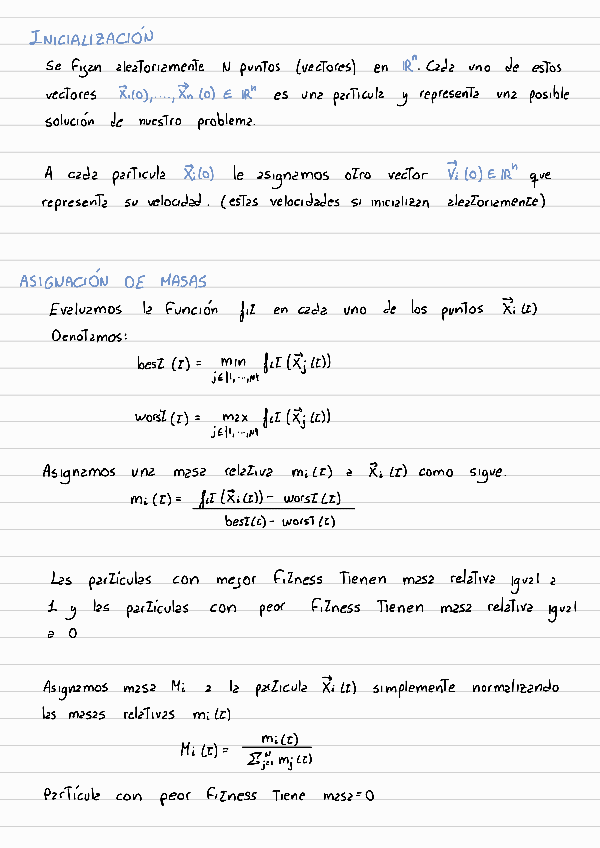 INICIALIZACIÓN
Se fijan aleatoriamente N puntos (vectores) en ℝⁿ. Cada uno de estos
vectores X⃗₁(0),...,X⃗ₙ(0) ∈ ℝⁿ es una partícula y representa una posible
solución de nuestro problema.
A cada partícula X⃗ᵢ(0) le asignamos otro vector V⃗ᵢ(0) ∈ ℝⁿ que
representa su velocidad. (estas velocidades si inicializan aleatoriamente)
ASIGNACIÓN DE MASAS
Evaluamos la función fit en cada uno de los puntos X⃗ᵢ(t)
Denotamos:
best (t) = min fit (X⃗ⱼ(t))
j∈{1,...,N}
worst (t) = max fit (X⃗ⱼ(t))
j∈{1,...,N}
Asignamos una masa relativa mᵢ(t) a X⃗ᵢ(t) como sigue.
mᵢ(t) = fit (X⃗ᵢ(t)) - worst (t)
best(t) - worst (t)
Las partículas con mejor fitness tienen masa relativa igual a
1 y las partículas con peor fitness tienen masa relativa igual
a 0
Asignamos masa Mᵢ a la partícula X⃗ᵢ(t) simplemente normalizando
las masas relativas mᵢ(t)
Mᵢ(t) = mᵢ(t)
∑ⱼ₌₁ᴺ mⱼ(t)
Partícula con peor fitness tiene masa=0